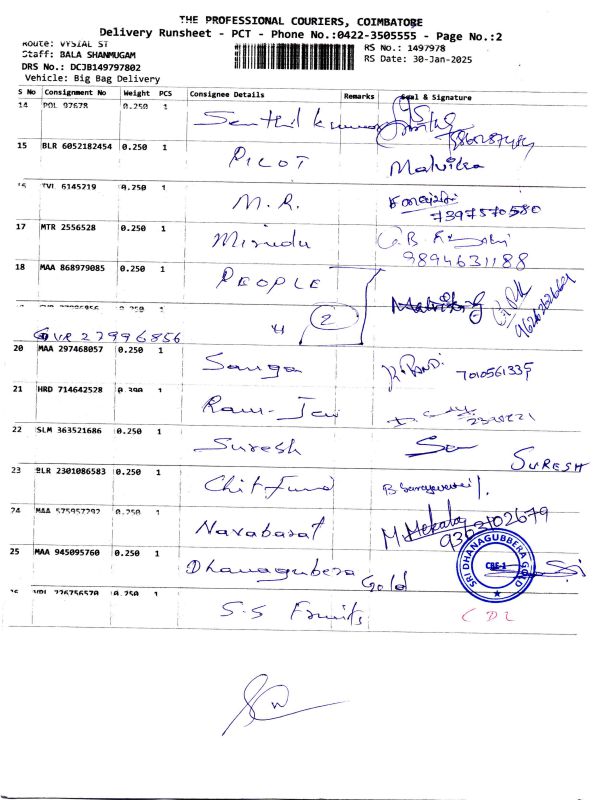 THE PROFESSIONAL COURIERS, COIMBATORE
Delivery Runsheet - PCT - Phone No.:0422-3505555 - Page No.:2
Route: VYSIAL ST
RS No.: 1497978
Staff: BALA SHANMUGAM
RS Date: 30-Jan-2025
DRS No.: DCJB149797802
Vehicle: Big Bag Delivery
S No Consignment No Weight PCS Consignee Details Remarks Seal & Signature
14 POL 97678 0.250 1 Senthil Kumar
15 BLR 6052182454 0.250 1 PILOT Malvika
16 TVL 6145219 0.250 1 M.R.
7397570580
17 MTR 2556528 0.250 1 Mirudu G.B.
9894631188
18 MAA 868979085 0.250 1 PEOPLE
0.250 1 4 2
GVR 27996856
20 MAA 297468057 0.250 1 Sanga 7010561335
21 HRD 714642528 0.390 1 Ram
22 SLM 363521686 0.250 1 Suresh SURESH
23 BLR 2301086583 0.250 1 Chit Fund B
24 MAA 575957292 0.250 1 Navabarat M. Mekala
9363102679
25 MAA 945095760 0.250 1 Dhanagubera Gold
SRI DHANAGUBBERA GOLD
CBE-1
26 VPL 726756570 0.250 1 S.S Fruits